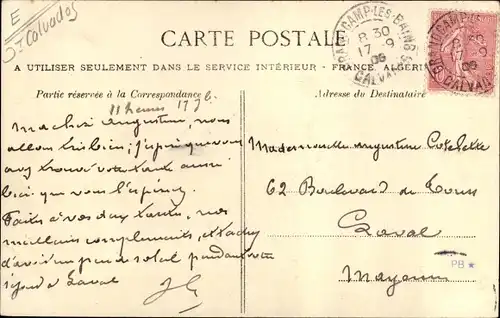 E
Calvados
CARTE POSTALE
A UTILISER SEULEMENT DANS LE SERVICE INTÉRIEUR - FRANCE, ALGÉRIE
GRANDCAMP-LES-BAINS
8 30
17 - 9
06
CALVADOS
GRANDCAMP-LES-BAINS
CALVADOS
Partie réservée à la Correspondance
Adresse du Destinataire
11 heures 17 7b
Ma chère Augustine, nous
allons très bien; j'espère que vous
avez trouvé votre tante aussi
bien que vous l'espériez.
Faites à vos deux tantes, nos
meilleurs compliments, et tachez
d'avoir un peu de soleil pendant votre
séjour à Laval
Mademoiselle Augustine
62 Boulevard de Tours
Laval
Mayenne
PB